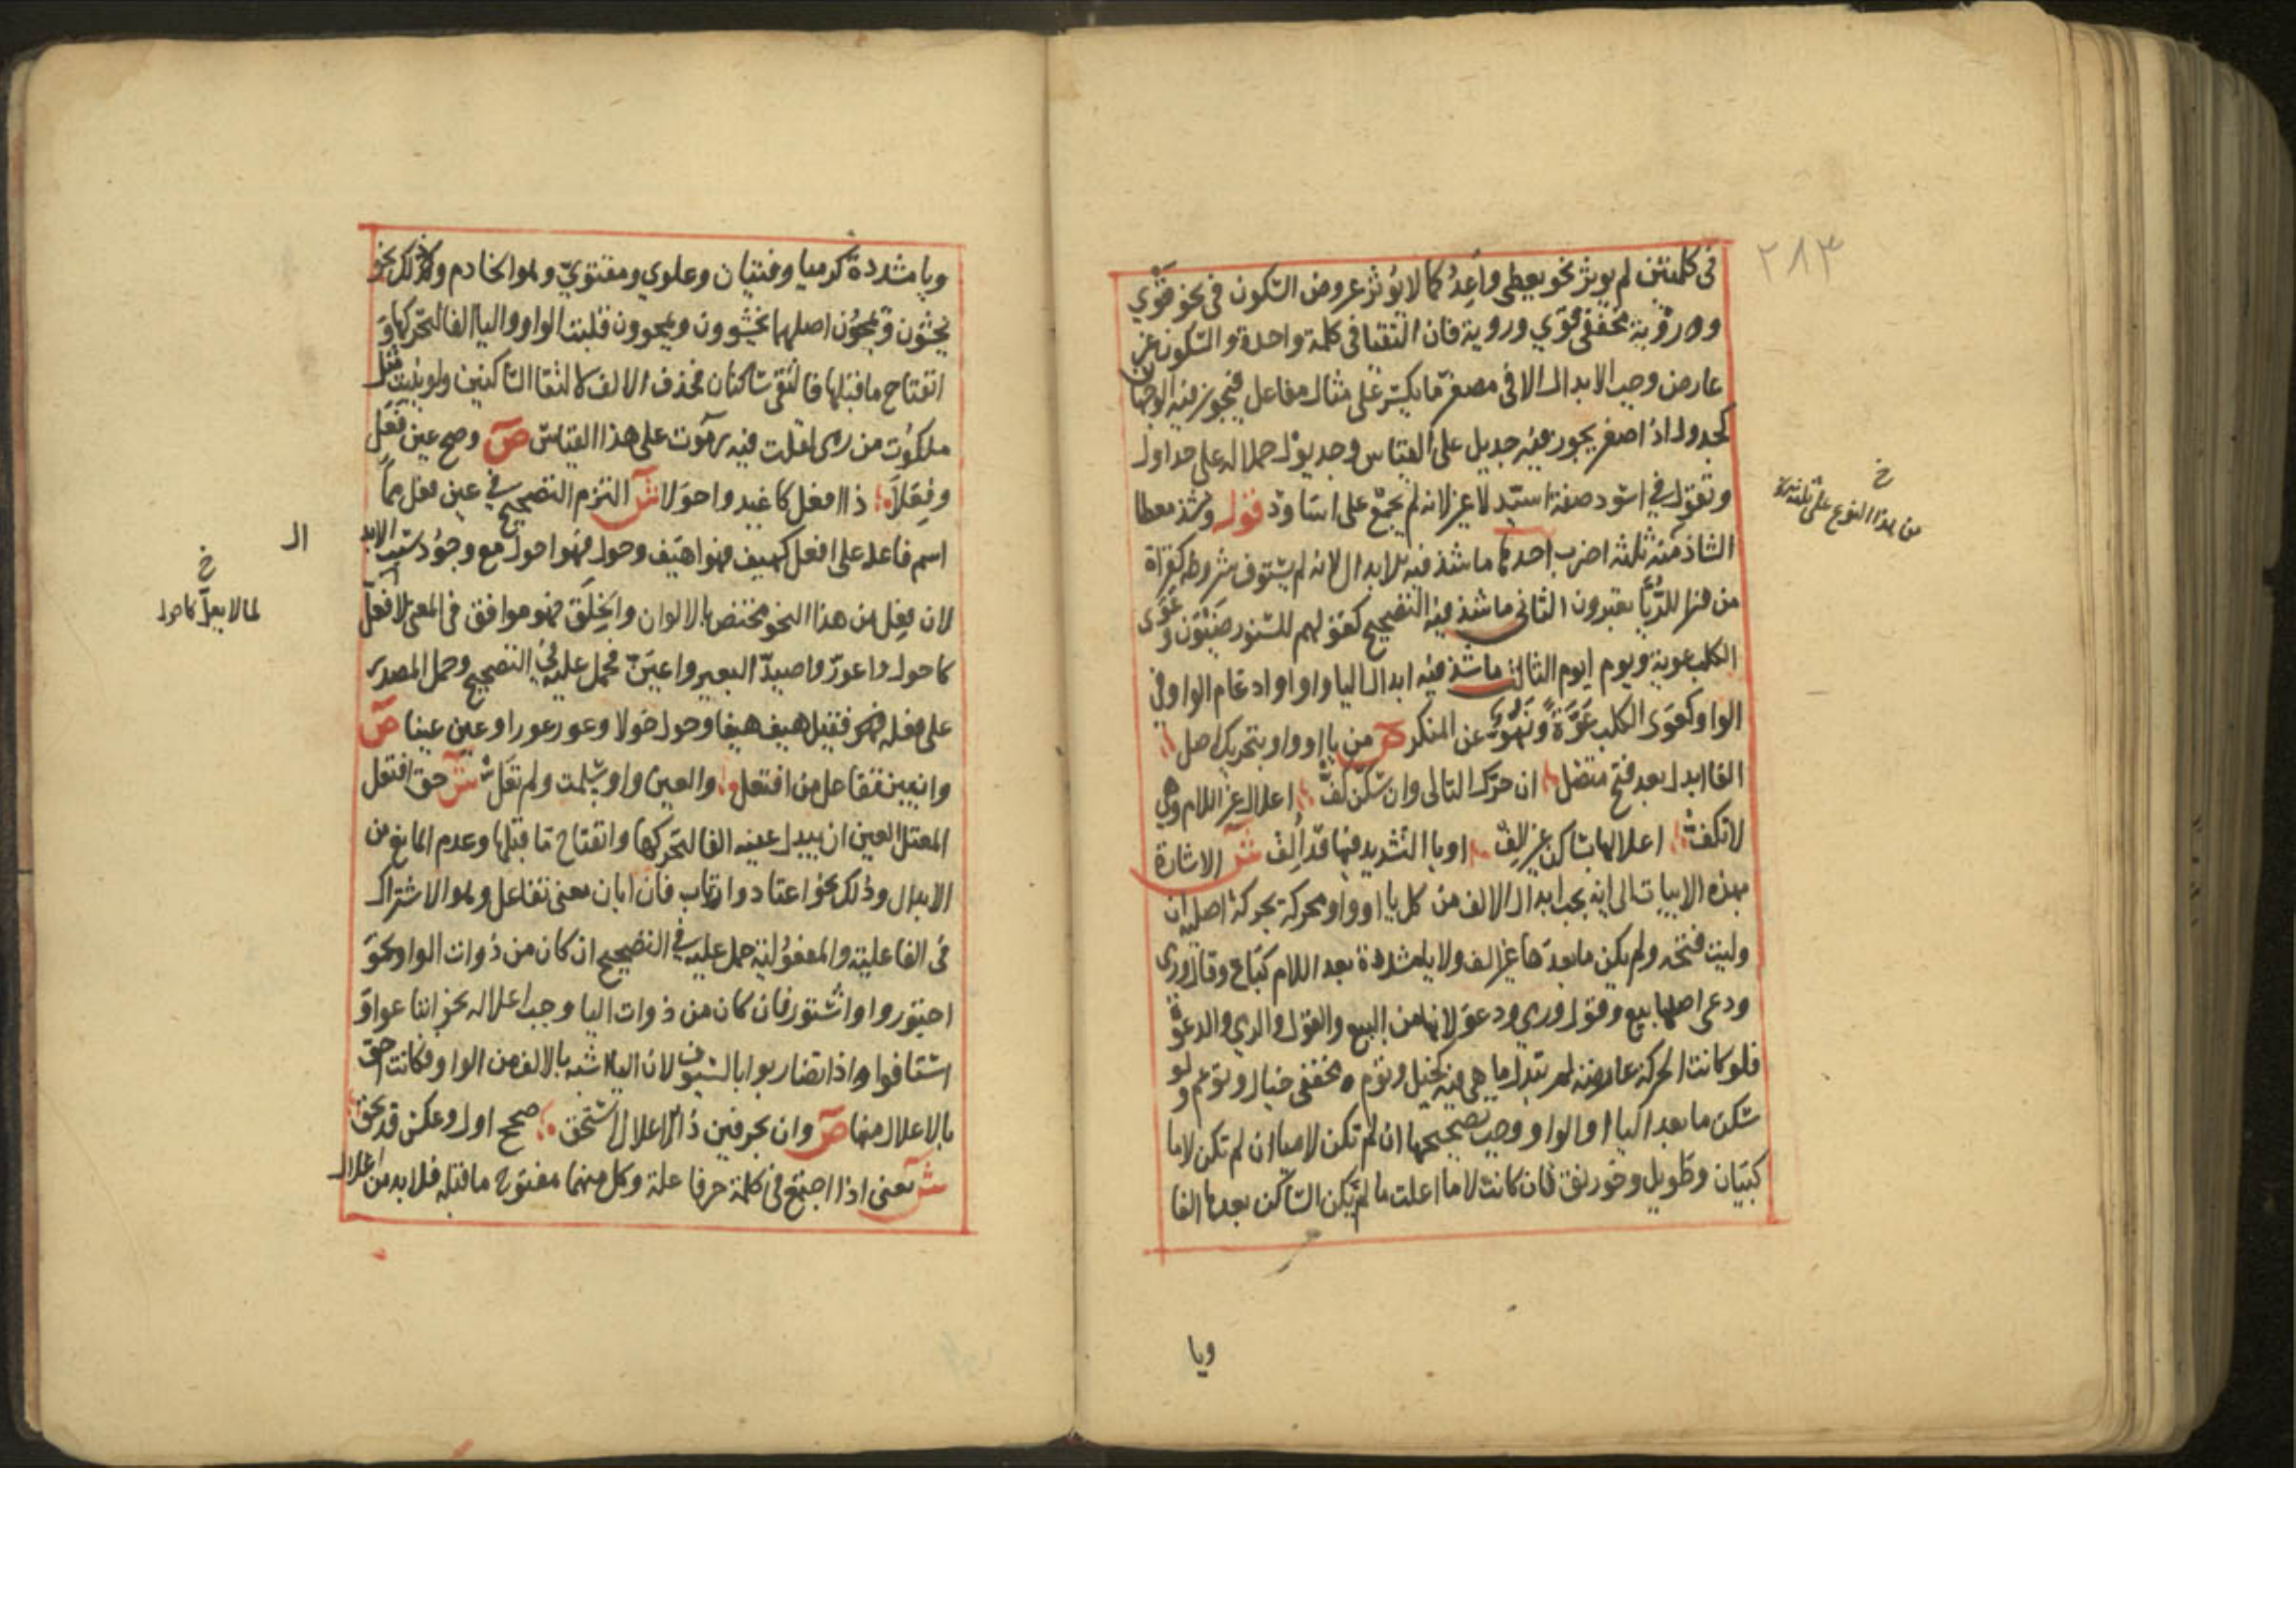 ٢٨٣
في كلمتين لم يوثر نحو يعطي واعد كما لا يؤثر عروض السكون في نحو قوي
ورؤية مخففي قوي وروية فان التقتا في كلمة واحدة والسكون غير
عارض وجب الابدال الا في مصغر ما يكسر على مثال مفاعل فيجوز فيه الوجهان
كجدول اذا صغر يجوز فيه جديل على القياس وجديول حملا له على جداول
وتقول في اسود صفة اسيد لا غير لانه لم يجمع على اساود قوله وشذ معطا
الشاذ منه ثلثة اضرب احدها ما شذ فيه الابدال لانه لم يستوف شروطه كقراة
من قرا للريا تعبرون الثاني ما شذ فيه التصحيح كقولهم للسنور ضيون وعوى
الكلب عوية ويوم ايوم الثالث ما شذ فيه ابدال اليا واوا وادغام الواو في
الواو كعوى الكلب عوة ونهو عن المنكر ص من يا او واو بتحريك اصل
الفا ابدل بعد فتح متصل ان حرك التالي وان سكن كف اعلال غير اللام وهي
لا تكف اعلالها بساكن غير الف او يا التشديد فيها قد الف ش الاشارة
بهذه الابيات الى انه يجب ابدال الالف من كل يا او واو محركة بحركة اصلية ان
وليت فتحه ولم يكن ما بعدها غير الف ولا يا مشددة بعد اللام كباع وقال ورمى
ودعى اصلها بيع وقول ورمي ودعو لانها من البيع والقول والرمي والدعوة
فلو كانت الحركة عارضة لم تبدل ما هي فيه كجيل وتوم مخففي جيال وتوعم ولو
سكن ما بعد اليا او الواو وجب تصحيحها ان لم تكن لاما ان لم تكن لاما
كبيان وطويل وخورنق فان كانت لاما اعلت ما لم يكن الساكن بعدها الفا
ويا
خ
من هذا النوع على ثلثة
ويا مشددة كرميا وفتيان وعلوي ومقتوي وهو الخادم وكذلك نحو
يخشون ويمحون اصلهما يخشيون ويمحوون قلبت الواو واليا الفا لتحركها و
انفتاح ما قبلها فالتقى ساكنان فحذف الالف لالتقا الساكنين ولو بنيت مثل
ملكوت من رمى لقلت فيه رموت على هذا القياس ص وصح عين فعل
وفعلا ذا افعل كاغيد واحولا ش التزم التصحيح في عين فعل مما
اسم فاعله على افعل كهيف فهو اهيف وحول فهو احول مع وجود سبب الابد
ال
لان فعل من هذا النحو مختص بالالوان والخلق فهو موافق في المعنى لافعل
كاحول واعور واصيد البعير واعين فحمل عليه في التصحيح وحمل المصدر
على فعله فقيل هيف هيفا وحول حولا وعور عورا وعين عينا ص
وان يبن تفاعل من افتعل والعين واو سلمت ولم تعل ش حق افتعل
المعتل العين ان يبدل عينه الفا لتحركها وانفتاح ما قبلها وعدم المانع من
الابدال وذلك نحو اعتاد وارتاب فان ابان معنى تفاعل وهو الاشتراك
في الفاعلية والمفعولية حمل عليه في التصحيح ان كان من ذوات الواو نحو
اجتوروا واشتوروا فان كان من ذوات اليا وجب اعلاله نحو ابتاعوا و
استافوا اذا تضاربوا بالسيوف لان اليا اشبه بالالف من الواو فكانت احق
بالاعلال منها ص وان بحرفين ذا الاعلال استحق صحح اول وعكس قد يحق
ش يعني اذا اجتمع في كلمة حرفا علة وكل منهما مفتوح ما قبله فلا بد من اعلال
خ
لما لا يعل كاحول